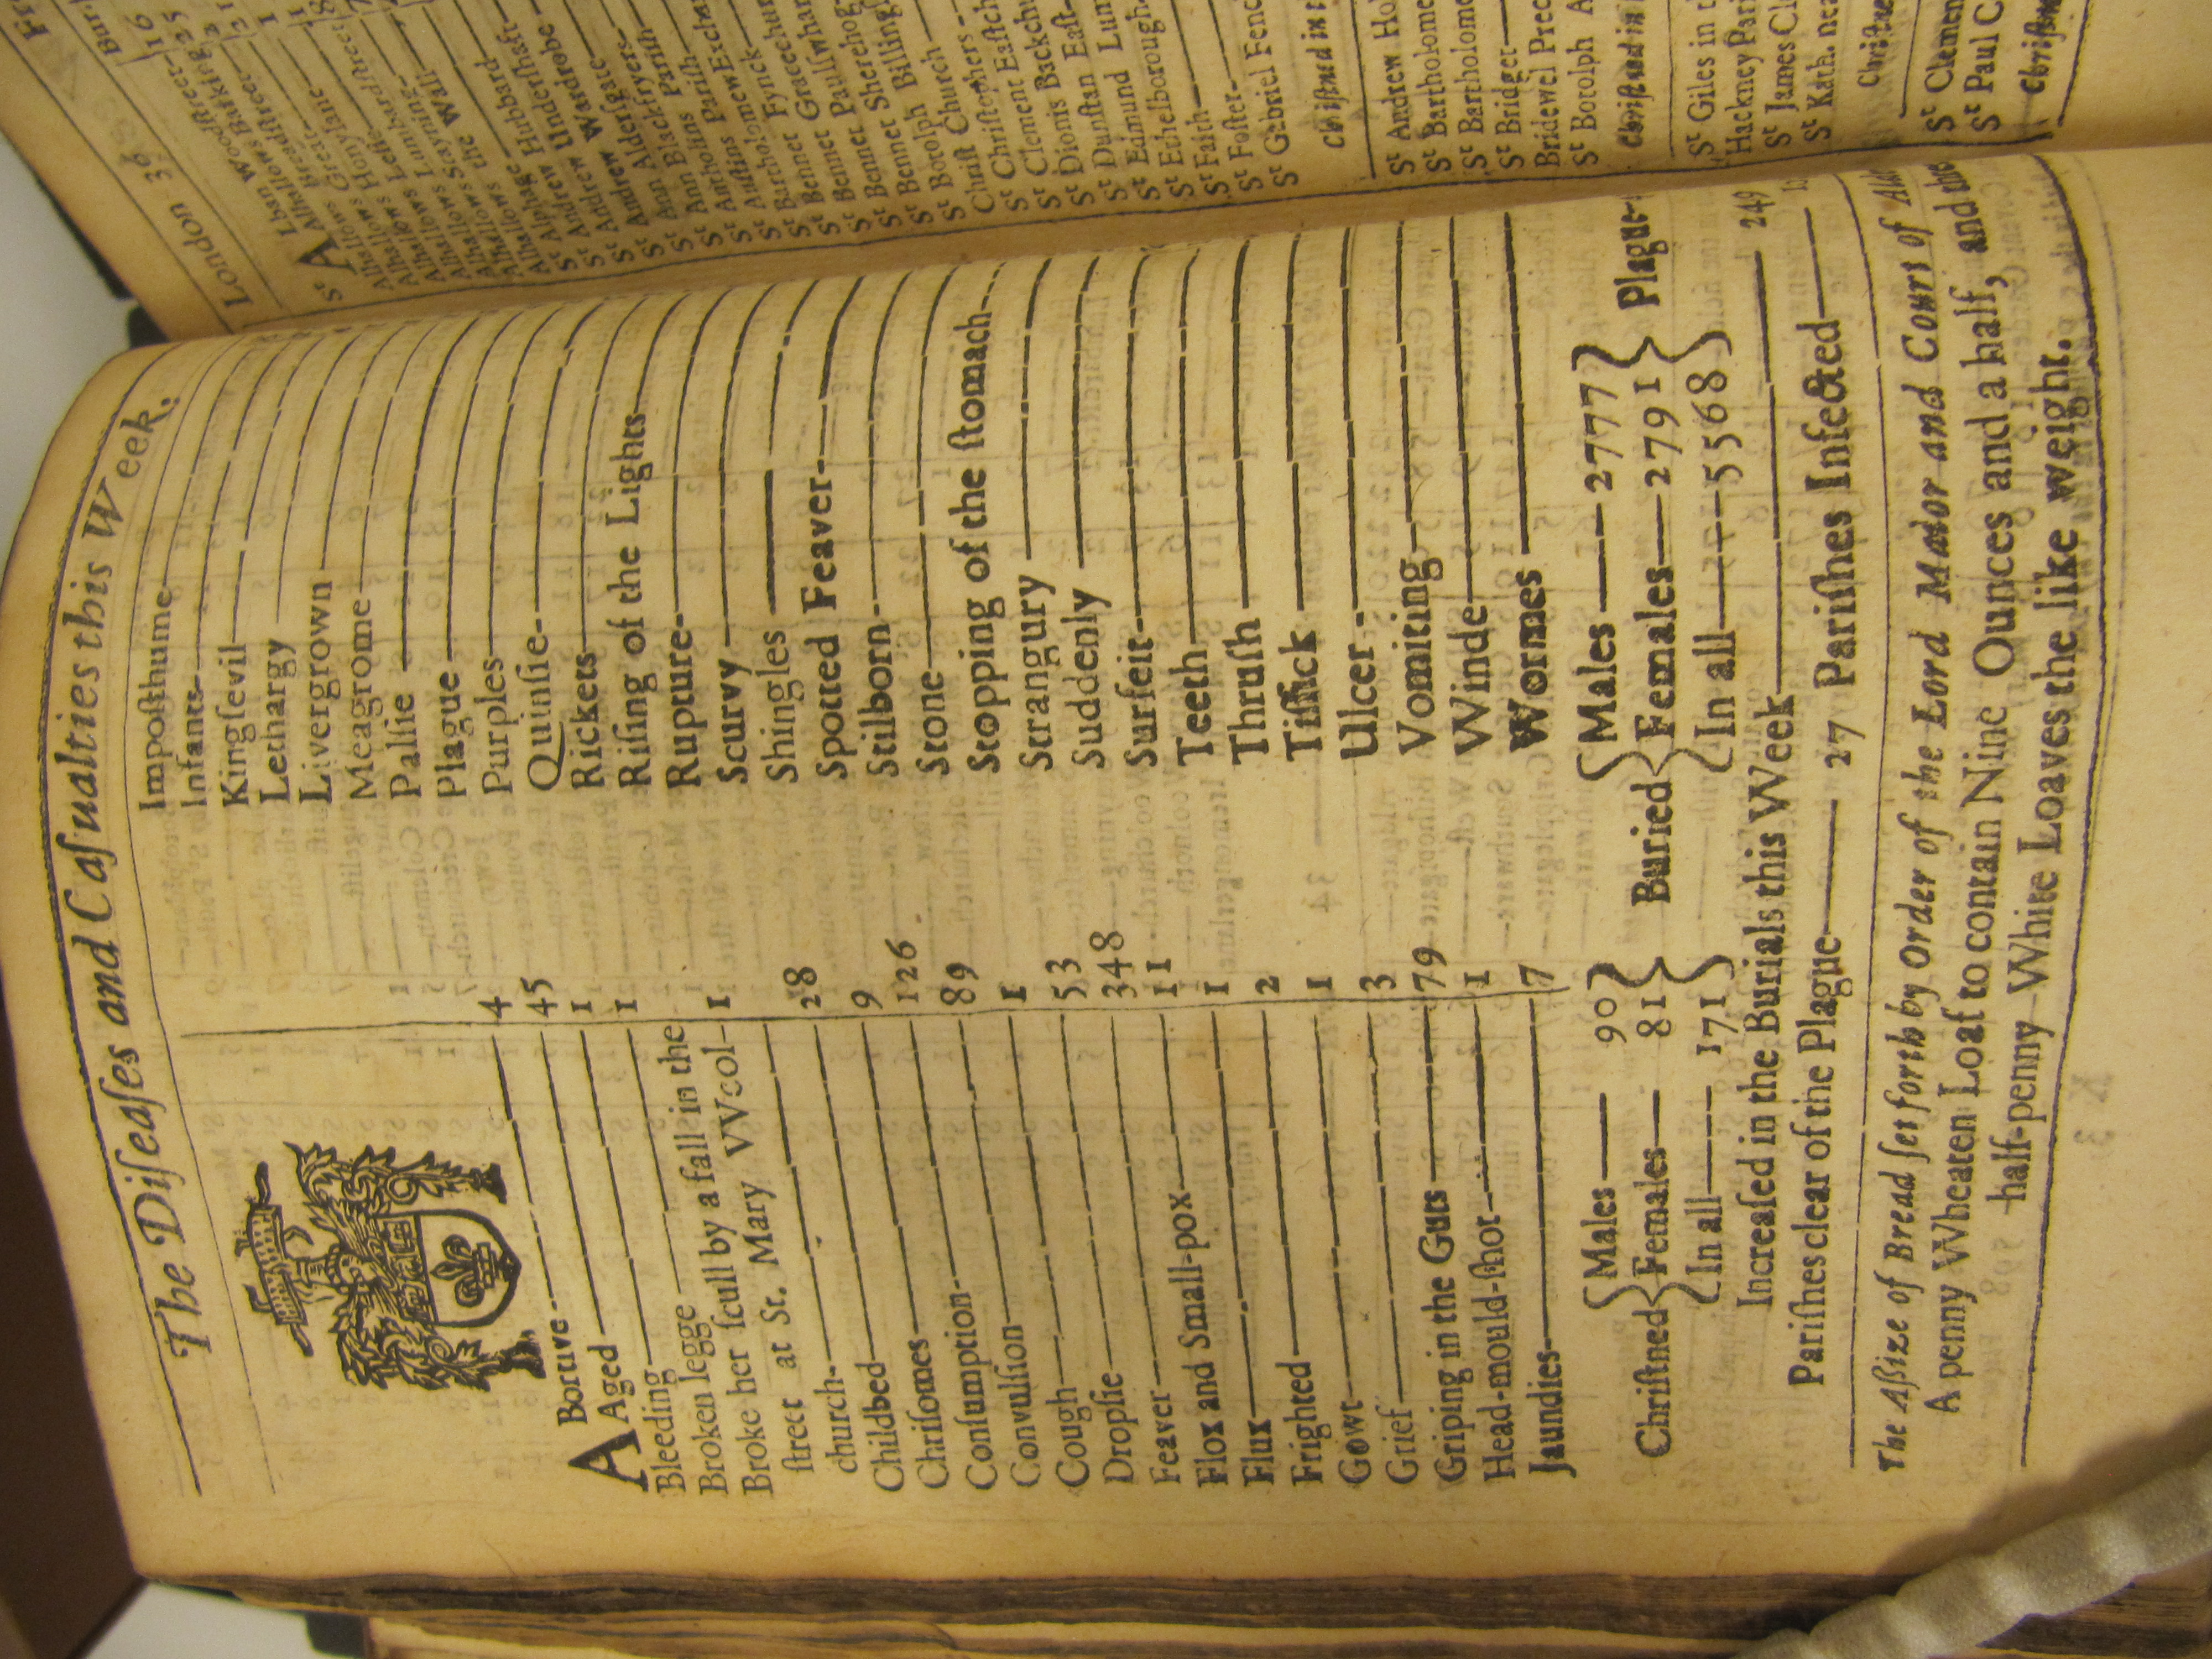 The Diſeaſes and Caſualties this Week.
ABortive — 4
Aged — 45
Bleeding — 1
Broken legge — 1
Broke her ſcull by a fall in the
ſtreet at St. Mary VVool-
church- — 1
Childbed — 28
Chriſomes — 9
Conſumption — 126
Convulſion — 89
Cough — 1
Dropſie — 53
Feaver — 348
Flox and Small-pox — 11
Flux — 1
Frighted — 2
Gowt — 1
Grief — 3
Griping in the Guts — 79
Head-mould-ſhot — 1
Jaundies — 7
Impoſthume
Infants
Kingſevil
Lethargy
Livergrown
Meagrome
Palſie
Plague
Purples
Quinſie
Rickets
Riſing of the Lights
Rupture
Scurvy
Shingles
Spotted Feaver
Stilborn
Stone
Stopping of the ſtomach
Strangury
Suddenly
Surfeit
Teeth
Thruſh
Tiſſick
Ulcer
Vomiting
Winde
Wormes
Chriſtned { Males — 90 Females — 81 In all — 171 }
Buried { Males — 2777 Females — 2791 In all — 5568 } Plague
Increaſed in the Burials this Week — 249
Pariſhes clear of the Plague — 27 Pariſhes Infected
The Aſsize of Bread ſet forth by Order of the Lord Maior and Court of
A penny Wheaten Loaf to contain Nine Ounces and a half, and
half-penny White Loaves the like weight.
London 36
Bur.
St ALban Woodſtreet 16
Alhallows Barking 25
Alhallows Breadſtreet 1
Alhallows Great
Alhallows Honylane
Alhallows Leſſe
Alhallows Lumbardſtreet
Alhallows Stayning
Alhallows the Wall
St Alphage
St Andrew Hubbard
St Andrew Underſhaft
St Andrew Wardrobe
St Ann Alderſgate
St Ann Blackfryers
St Antholins Pariſh
St Auſtins Pariſh
St Bartholomew Exchan
St Bennet Fynck
St Bennet Gracechur
St Bennet Paulſwhar
St Bennet Sherehog
St Botolph Billing
Chriſt Church
St Chriſtophers
St Clement Eaſtch
St Dionis Backchu
St Dunſtan Eaſt
St Edmund Lum
St Ethelborough
St Faith
St Foſter
St Gabriel Fenc
Chriſtned in t
St Andrew Ho
St Bartholome
St Bartholome
St Bridget
Bridewel Prec
St Botolph A
Chriſtned in
St Giles in t
Hackney Pari
St James Cl
St Kath. nea
Chriſtne
St Clemen
St Paul C
Chriſtn